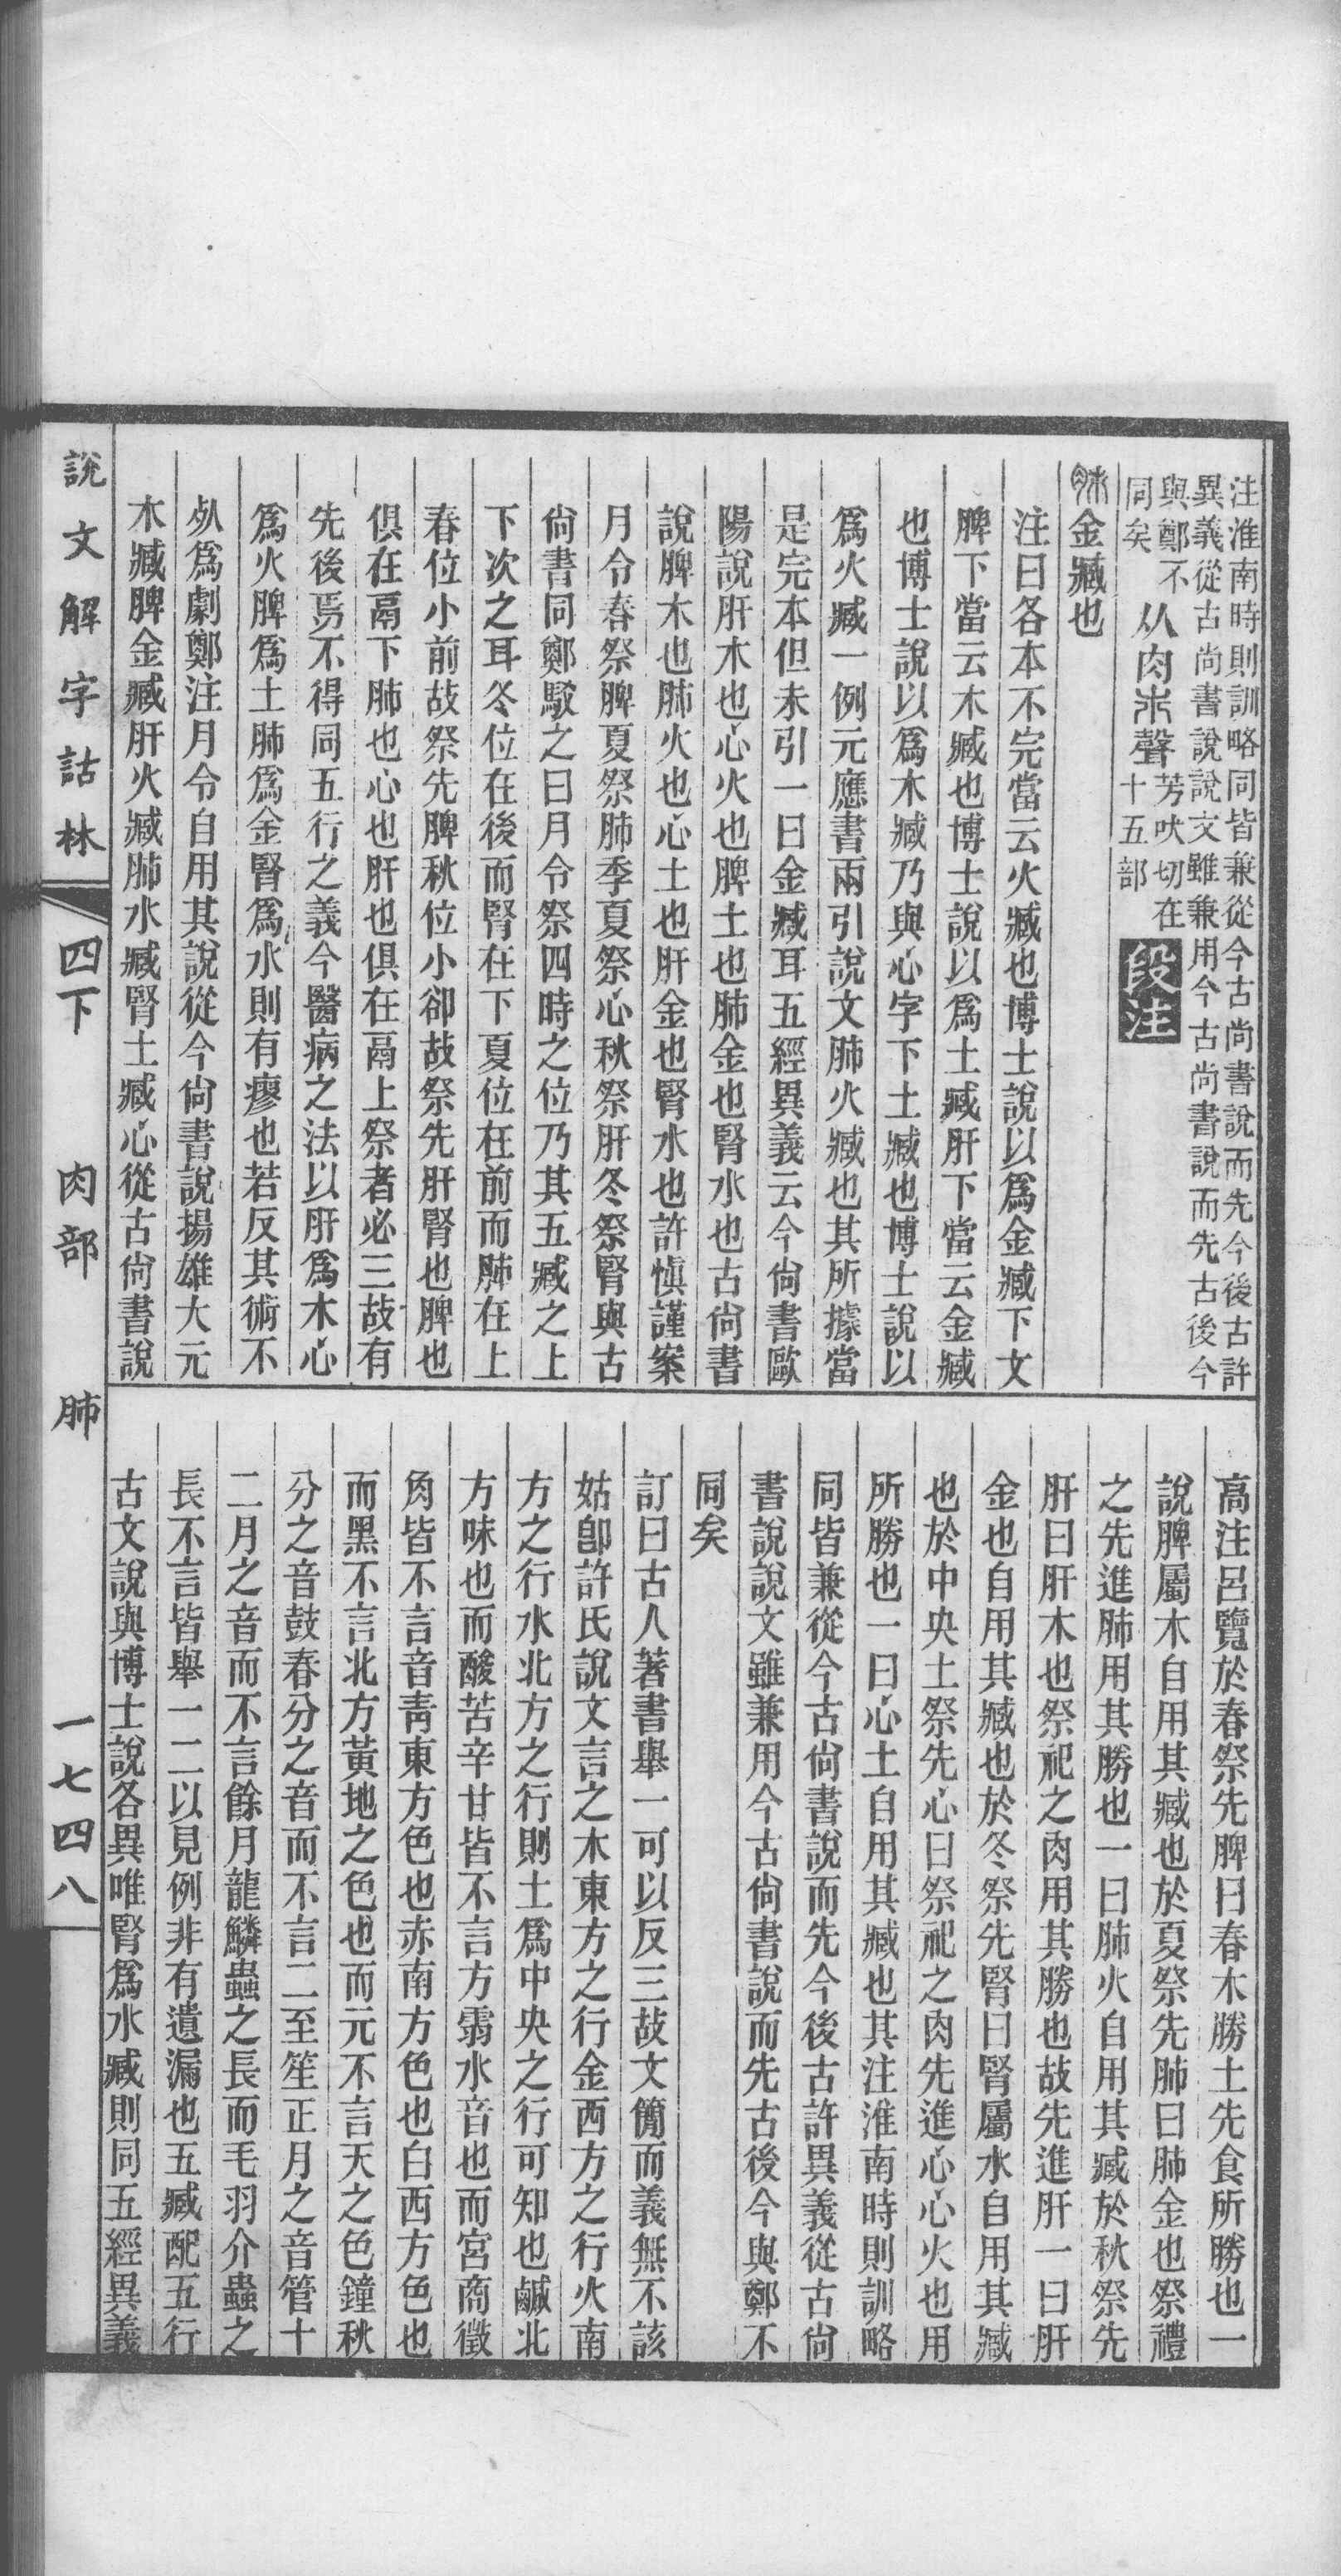 注淮南時則訓略同皆兼從今古尚書說而先今後古許
異義從古尚書說說文雖兼用今古尚書說而先古後今
與鄭不
同矣
从肉巿聲
芳吠切在
十五部
段注
金臧也
注曰各本不完當云火臧也博士說以爲金臧下文
脾下當云木臧也博士說以爲土臧肝下當云金臧
也博士說以爲木臧乃與心字下土臧也博士說以
爲火臧一例元應書兩引說文肺火臧也其所據當
是完本但未引一曰金臧耳五經異義云今尙書歐
陽說肝木也心火也脾土也肺金也腎水也古尙書
說脾木也肺火也心土也肝金也腎水也許愼謹案
月令春祭脾夏祭肺季夏祭心秋祭肝冬祭腎與古
尙書同鄭駮之曰月令祭四時之位乃其五臧之上
下次之耳冬位在後而腎在下夏位在前而肺在上
春位小前故祭先脾秋位小卻故祭先肝腎也脾也
俱在鬲下肺也心也肝也俱在鬲上祭者必三故有
先後焉不得同五行之義今醫病之法以肝爲木心
爲火脾爲土肺爲金腎爲水則有瘳也若反其術不
𣦸爲劇鄭注月令自用其說從今尙書說揚雄大元
木臧脾金臧肝火臧肺水臧腎土臧心從古尙書說
高注呂覽於春祭先脾曰春木勝土先食所勝也一
說脾屬木自用其臧也於夏祭先肺曰肺金也祭禮
之先進肺用其勝也一曰肺火自用其臧於秋祭先
肝曰肝木也祭祀之肉用其勝也故先進肝一曰肝
金也自用其臧也於冬祭先腎曰腎屬水自用其臧
也於中央土祭先心曰祭祀之肉先進心心火也用
所勝也一曰心土自用其臧也其注淮南時則訓略
同皆兼從今古尙書說而先今後古許異義從古尙
書說說文雖兼用今古尙書說而先古後今與鄭不
同矣
訂曰古人著書舉一可以反三故文簡而義無不該
姑卽許氏說文言之木東方之行金西方之行火南
方之行水北方之行則土爲中央之行可知也鹹北
方味也而酸苦辛甘皆不言方霸水音也而宮商徵
角皆不言音靑東方色也赤南方色也白西方色也
而黑不言北方黃地之色也而元不言天之色鐘秋
分之音鼓春分之音而不言二至笙正月之音管十
二月之音而不言餘月龍鱗蟲之長而毛羽介蟲之
長不言皆舉一二以見例非有遺漏也五臧配五行
古文說與博士說各異唯腎爲水臧則同五經異義
說文解字詁林
四下
肉部
肺
一七四八